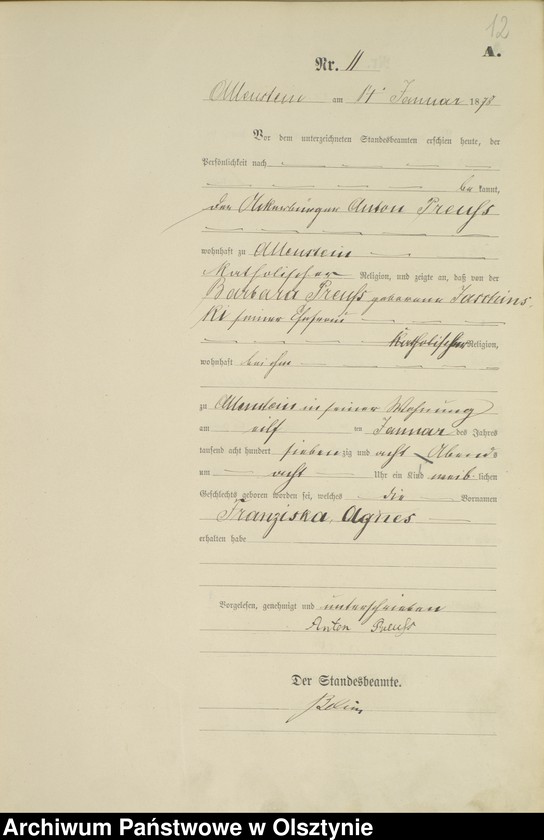 12
A.
Nr. 11
Allenstein am 14 Januar 1878
Vor dem unterzeichneten Standesbeamten erschien heute, der
Persönlichkeit nach
be kannt,
der Ackerbürger Anton Preuß
wohnhaft zu Allenstein
Katholischer Religion, und zeigte an, daß von der
Barbara Preuß geborene Jaschins
ki seiner Ehefrau
Katholischer Religion,
wohnhaft bei ihm
zu Allenstein in seiner Wohnung
am eilf ten Januar des Jahres
tausend acht hundert sieben zig und acht Abends
um acht Uhr ein Kind weib lichen
Geschlechts geboren worden sei, welches die Vornamen
Franziska, Agnes
erhalten habe
Vorgelesen, genehmigt und unterschrieben
Anton Preuß
Der Standesbeamte.
Archiwum Państwowe w Olsztynie